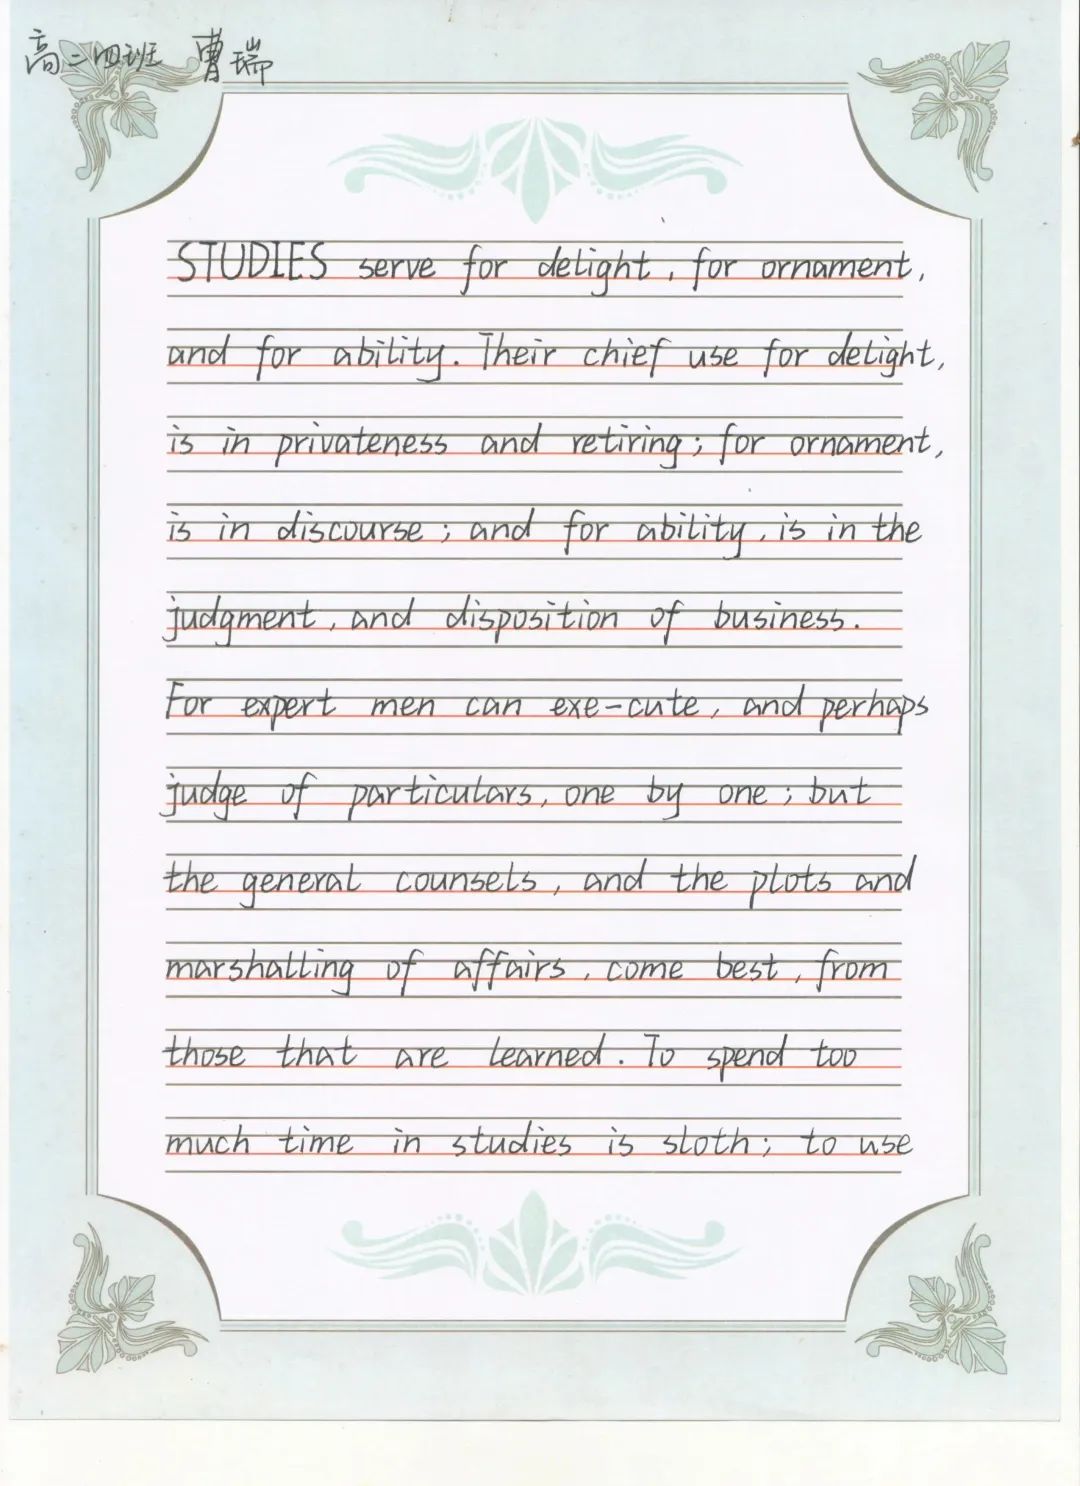 高二四班 曹瑞
STUDIES serve for delight, for ornament,
and for ability. Their chief use for delight,
is in privateness and retiring; for ornament,
is in discourse; and for ability, is in the
judgment, and disposition of business.
For expert men can exe-cute, and perhaps
judge of particulars, one by one; but
the general counsels, and the plots and
marshalling of affairs, come best, from
those that are learned. To spend too
much time in studies is sloth; to use